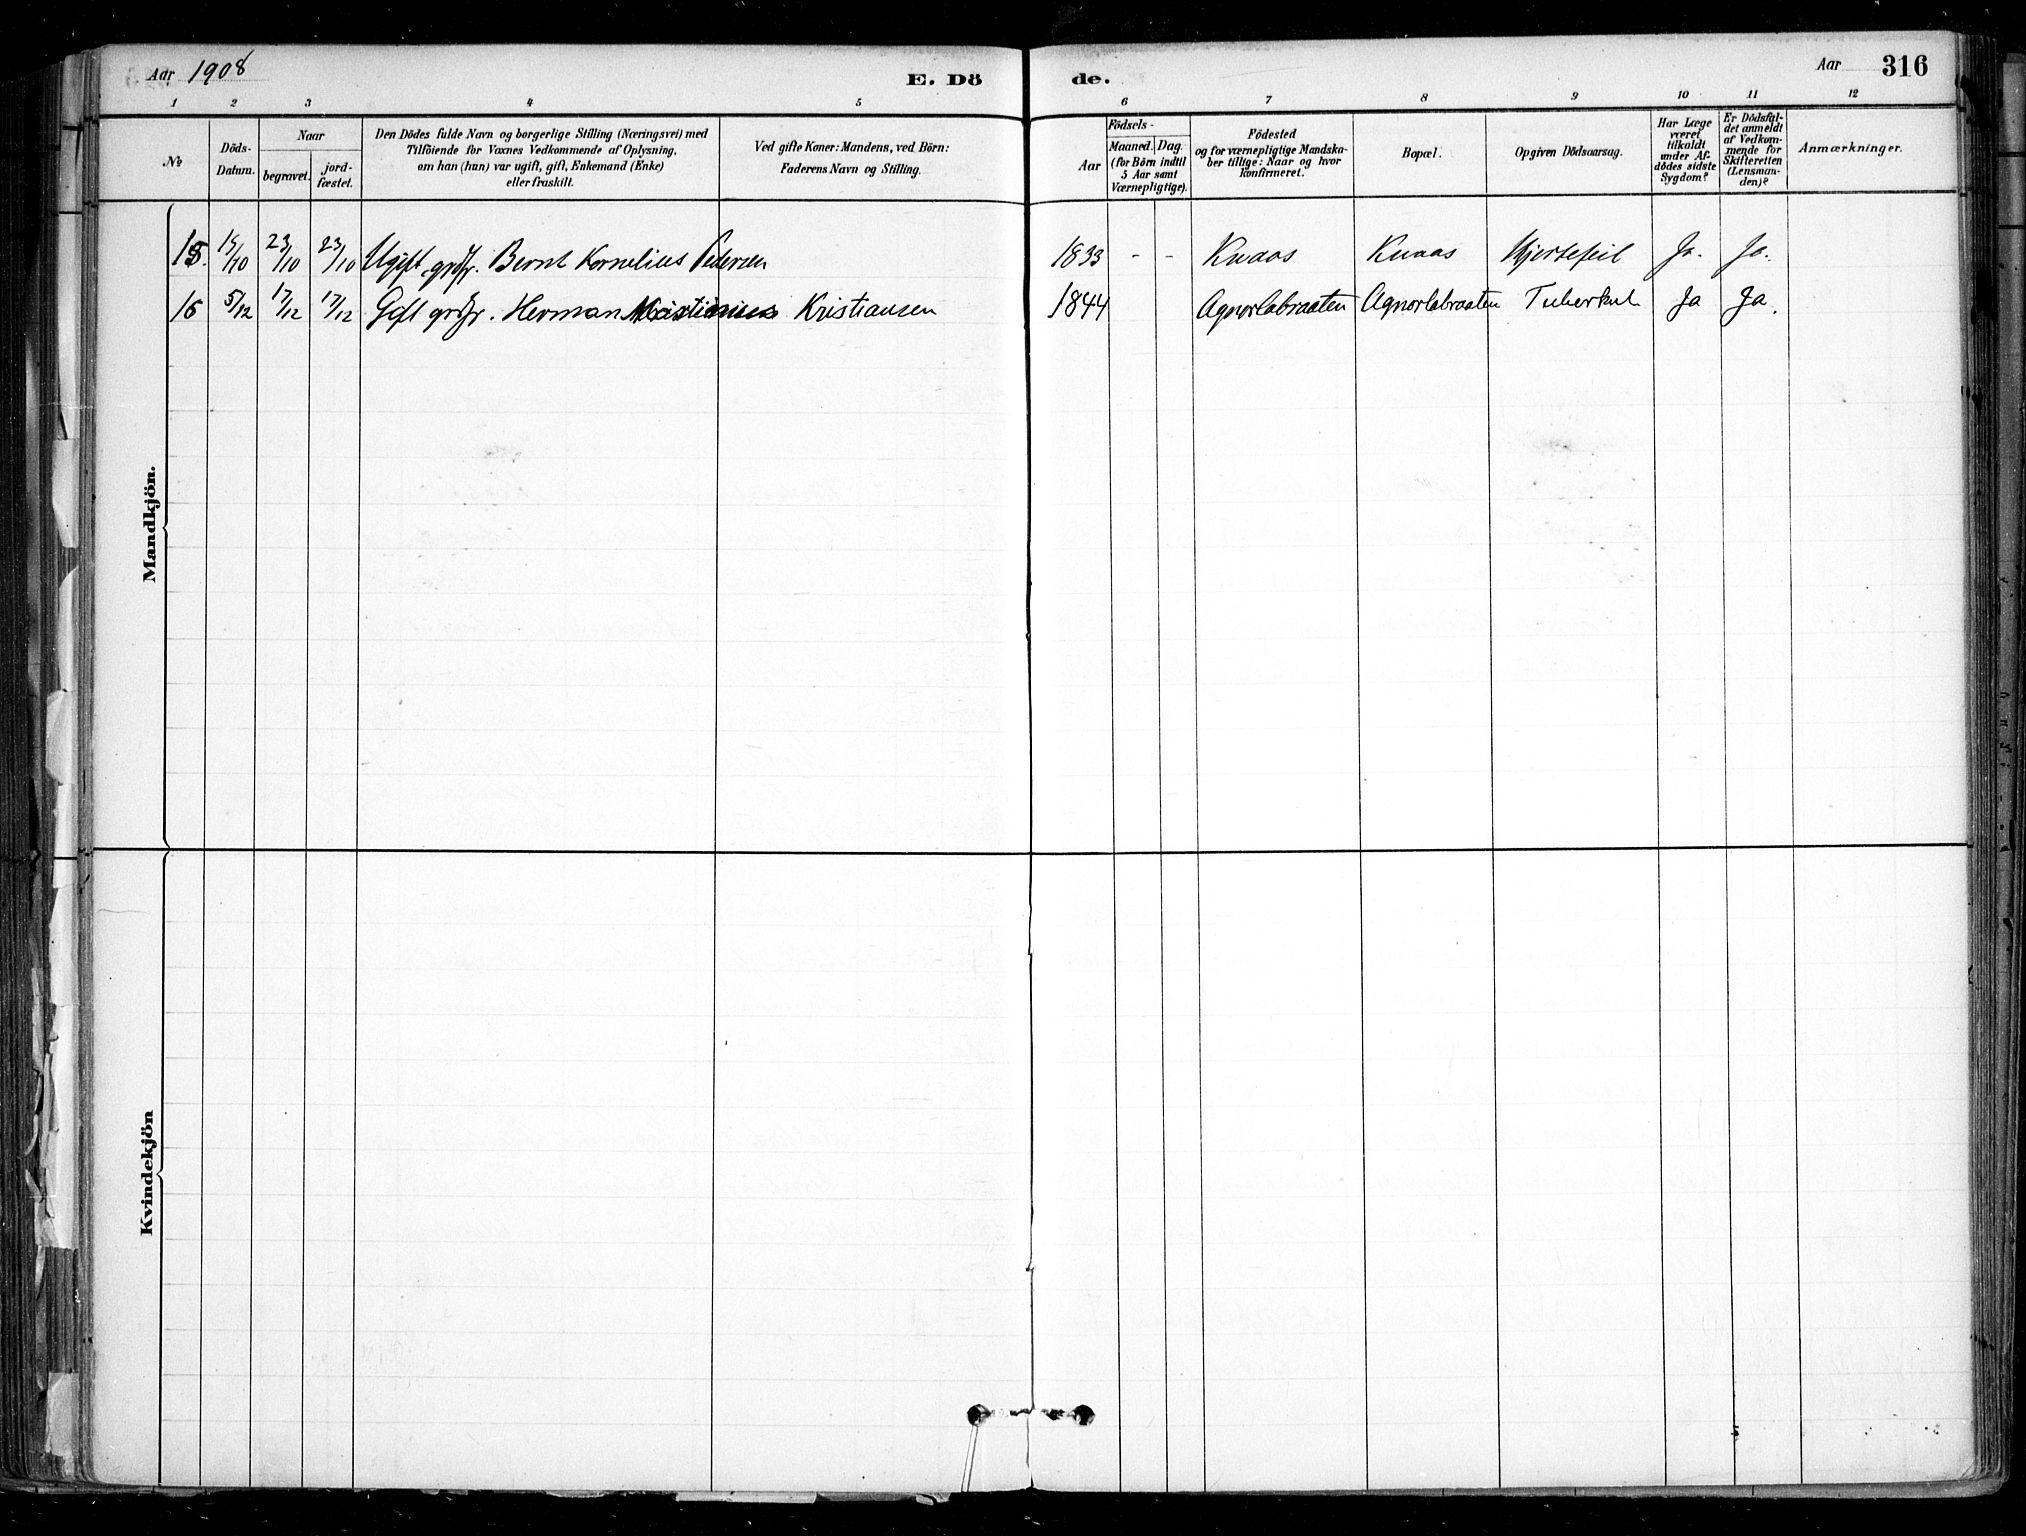 Aar 1908 E. Dö de. Aar 316
1 2 3 4 5 6 7 8 9 10 11 12
No
Döds-Datum.
Naar
begravet.
jord-fæstet.
Den Dödes fulde Navn og borgerlige Stilling (Næringsvei) med
Tilföiende for Voxnes Vedkommende af Oplysning,
om han (hun) var ugift, gift, Enkemand (Enke)
eller fraskilt.
Ved gifte Koner: Mandens, ved Börn:
Faderens Navn og Stilling.
Födsels-
Aar
Maaned. Dag.
(for Börn indtil
5 Aar samt
Værnepligtige).
Födested
og for værnepligtige Mandska-
ber tillige: Naar og hvor
konfirmeret.
Bopæl.
Opgiven Dödsaarsag.
Har Læge
været
tilkaldt
under Af-
dödes sidste
Sygdom?
Er Dödsfal-
det anmeldt
af Vedkom-
mende for
Skifteretten
(Lensman-
den)?
Anmærkninger.
Mandkjön.
15. 15/10 23/10 23/10 Ugift grdfr. Bernt Kornelius Pedersen 1833 - - Knaos Knaas Hjertefeil Ja. Ja.
16 5/12 17/12 17/12 Gift grdfr. Herman Kristiansen 1844 Agnorlabraaten Agnorlabraaten Tuberkul Ja Ja.
Kvindekjön